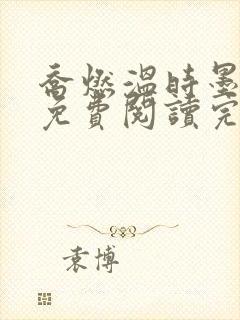 喬燃溫時墨
免費閱讀完
袁博